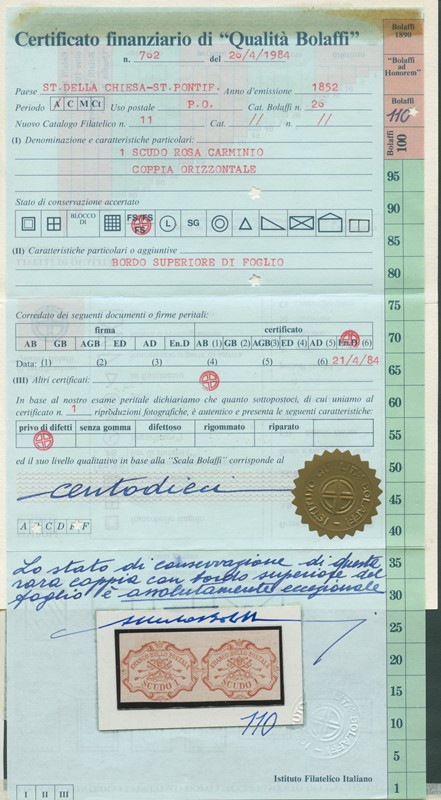 Certificato finanziario di "Qualità Bolaffi"
n. 762 del 26/4/1984
Paese ST.DELLA CHIESA-ST.PONTIF. Anno d'emissione 1852
Periodo A C M Ct Uso postale P.O. Cat. Bolaffi n. 26
Nuovo Catalogo Filatelico n. 11 Cat. // n. //
(I) Denominazione e caratteristiche particolari:
1 SCUDO ROSA CARMINIO
COPPIA ORIZZONTALE
Stato di conservazione accertato
BLOCCO DI FS/FS FS L SG
(II) Caratteristiche particolari o aggiuntive
BORDO SUPERIORE DI FOGLIO
Corredato dei seguenti documenti o firme peritali:
firma certificato
AB GB AGB ED AD En.D AB (1) GB (2) AGB(3) ED (4) AD (5) En.D (6)
Data: (1) (2) (3) (4) (5) (6) 21/4/84
(III) Altri certificati:
In base al nostro esame peritale dichiariamo che quanto sottoposteci, di cui uniamo al
certificato n. 1 riproduzioni fotografiche, è autentico e presenta le seguenti caratteristiche:
privo di difetti senza gomma difettoso rigommato riparato
ed il suo livello qualitativo in base alla "Scala Bolaffi" corrisponde al
centodieci
A B C D E F
Lo stato di conservazione di questa
rara coppia con bordo superiore del
foglio è assolutamente eccezionale
FRANCO BOLLO POSTALE
SCUDO 1
FRANCO BOLLO POSTALE
SCUDO 1
110
ISTITUTO BOLAFFI
BOLAFFI
Istituto Filatelico Italiano
I II III
Bolaffi
1890
"Bolaffi
ad
Honorem"
Bolaffi
110
Bolaffi 100
95
90
85
80
75
70
65
60
55
50
45
40
35
30
25
20
15
10
5
1